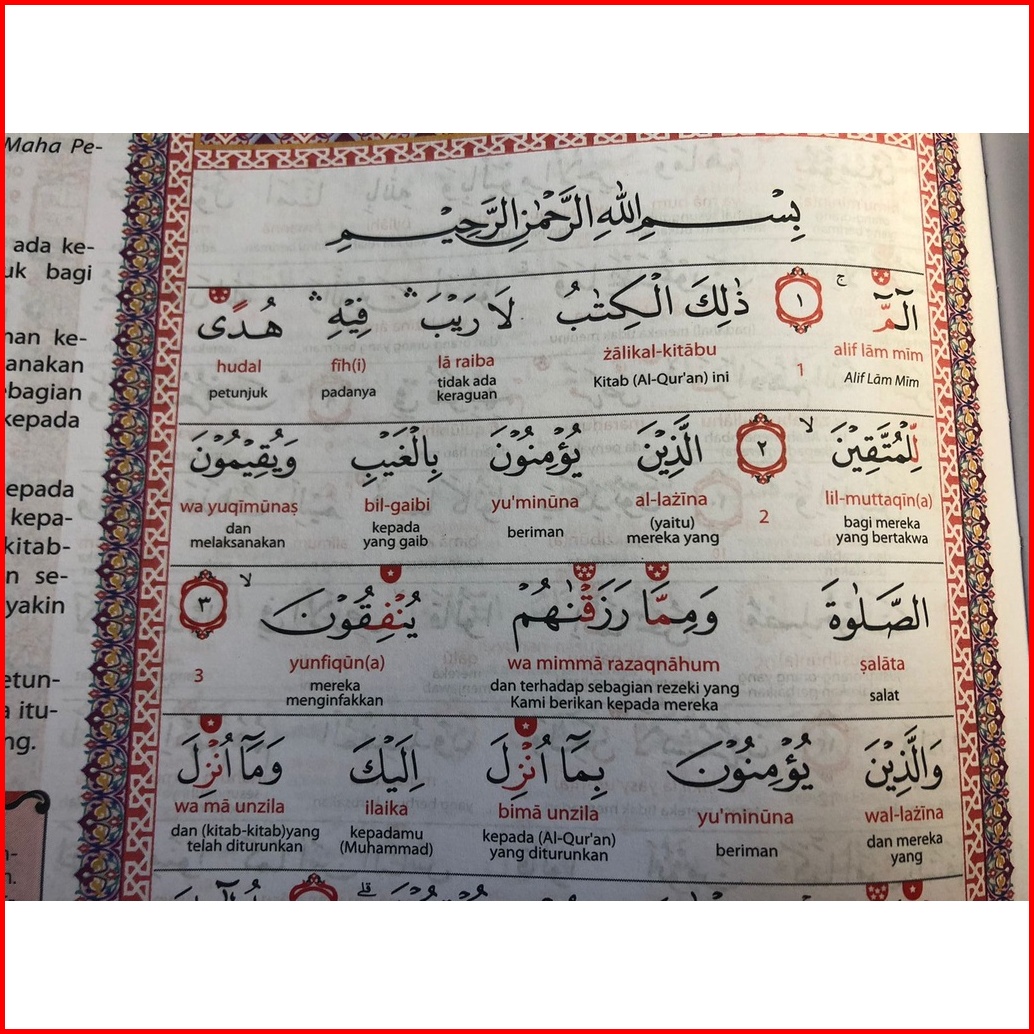 Maha Pe-
ada ke-
uk bagi
anakan
ebagian
kepada
epada
kepa-
kitab-
n se-
yakin
etun-
itu-
ng.
بِسْمِ اللّٰهِ الرَّحْمٰنِ الرَّحِيْمِ
الۤمّۤ ۚ ١ ذٰلِكَ الْكِتٰبُ لَا رَيْبَ ۛ فِيْهِ ۛ هُدًى
alif lām mīm 1 żālikal-kitābu lā raiba fīh(i) hudal
Alif Lām Mīm Kitab (Al-Qur'an) ini tidak ada keraguan padanya petunjuk
لِّلْمُتَّقِيْنَ ۙ ٢ الَّذِيْنَ يُؤْمِنُوْنَ بِالْغَيْبِ وَيُقِيْمُوْنَ
lil-muttaqīn(a) 2 al-lażīna yu'minūna bil-gaibi wa yuqīmūnaṣ
bagi mereka yang bertakwa (yaitu) mereka yang beriman kepada yang gaib dan melaksanakan
الصَّلٰوةَ وَمِمَّا رَزَقْنٰهُمْ يُنْفِقُوْنَ ۙ ٣
ṣalāta wa mimmā razaqnāhum yunfiqūn(a) 3
salat dan terhadap sebagian rezeki yang Kami berikan kepada mereka mereka menginfakkan
وَالَّذِيْنَ يُؤْمِنُوْنَ بِمَآ اُنْزِلَ اِلَيْكَ وَمَآ اُنْزِلَ
wal-lażīna yu'minūna bimā unzila ilaika wa mā unzila
dan mereka yang beriman kepada (Al-Qur'an) yang diturunkan kepadamu (Muhammad) dan (kitab-kitab)yang telah diturunkan